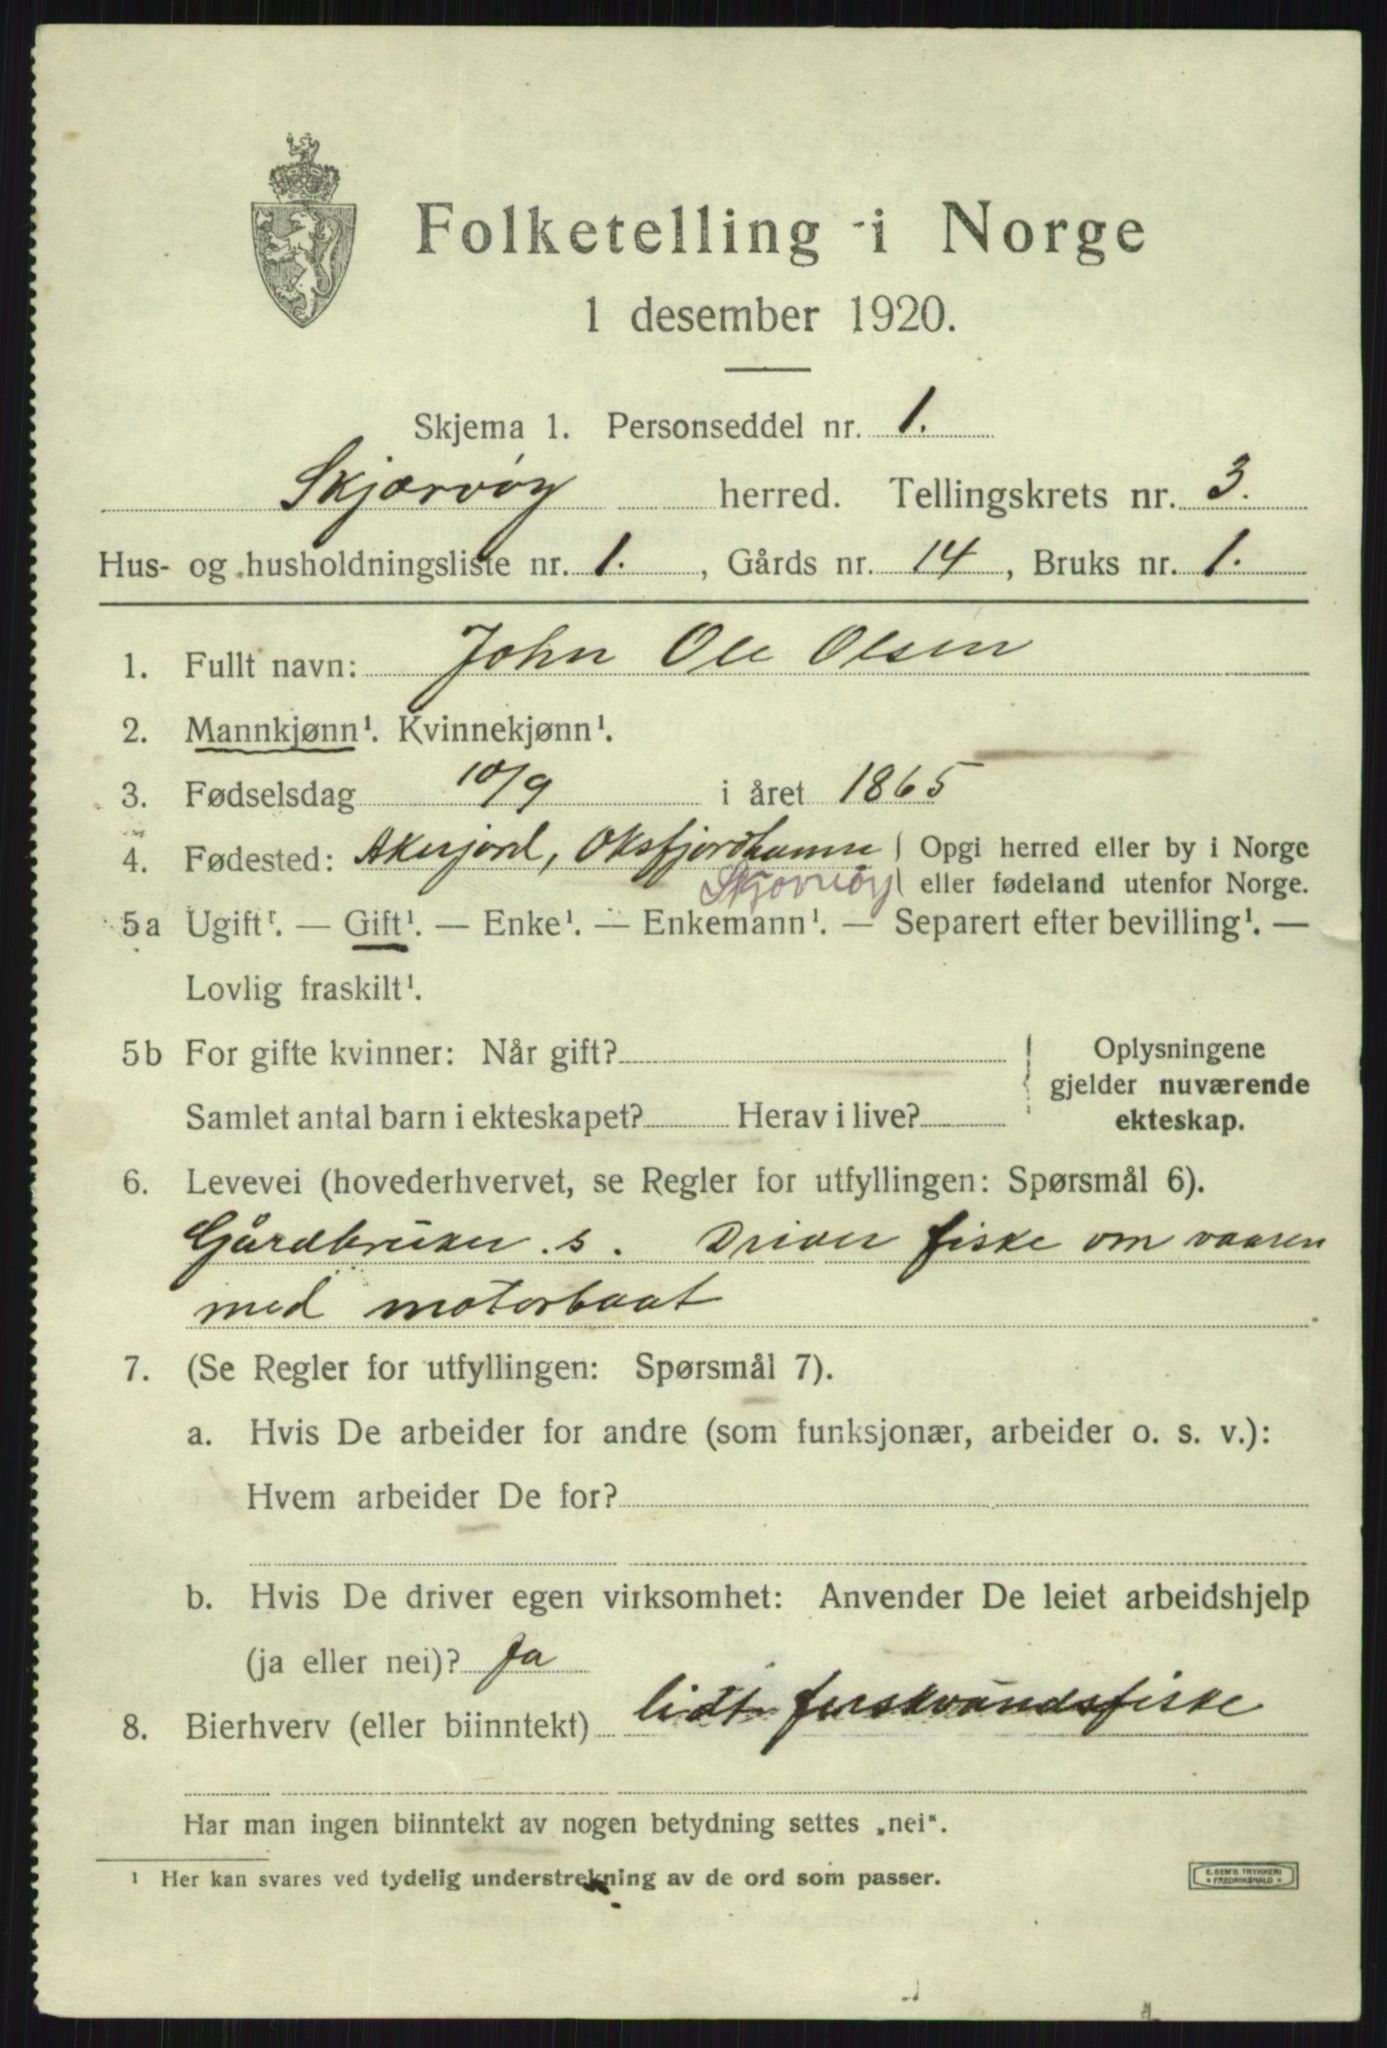 Folketelling i Norge
1 desember 1920.
Skjema 1. Personseddel nr. 1.
Skjærvøy herred. Tellingskrets nr. 3.
Hus- og husholdningsliste nr. 1., Gårds nr. 14, Bruks nr. 1.
1. Fullt navn: John Ole Olsen
2. Mannkjønn¹. Kvinnekjønn¹.
3. Fødselsdag 10/9 i året 1865
4. Fødested: Akerjord, Oksfjordhamn Opgi herred eller by i Norge
Skjervøy eller fødeland utenfor Norge.
5a Ugift¹. — Gift¹. — Enke¹. — Enkemann¹. — Separert efter bevilling¹. —
Lovlig fraskilt¹.
5b For gifte kvinner: Når gift? Oplysningene
gjelder nuværende
Samlet antal barn i ekteskapet? Herav i live? ekteskap.
6. Levevei (hovederhvervet, se Regler for utfyllingen: Spørsmål 6).
Gårdbruker. s. Driver fiske om vaaren
med motorbaat
7. (Se Regler for utfyllingen: Spørsmål 7).
a. Hvis De arbeider for andre (som funksjonær, arbeider o. s. v.):
Hvem arbeider De for?
b. Hvis De driver egen virksomhet: Anvender De leiet arbeidshjelp
(ja eller nei)? Ja
8. Bierhverv (eller biinntekt) lidt ferskvandsfiske
Har man ingen biinntekt av nogen betydning settes „nei“.
¹ Her kan svares ved tydelig understrekning av de ord som passer.
E. SEM'S TRYKKERI
FREDRIKSHALD